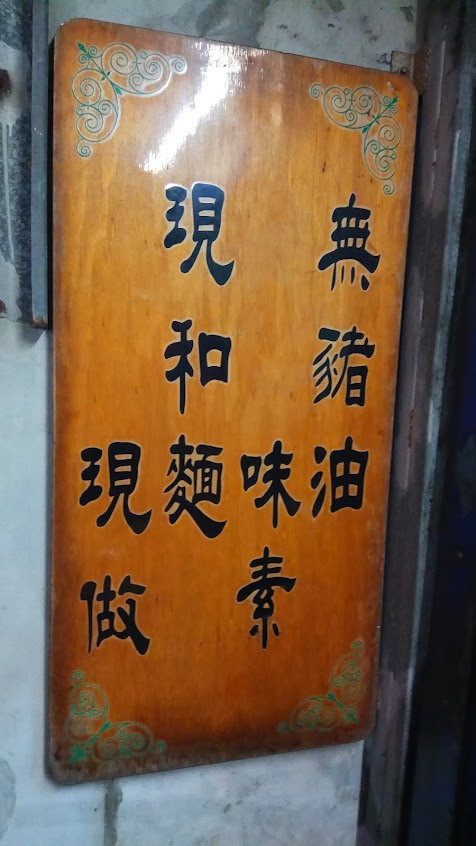 無豬油
味素
現和麵
現做